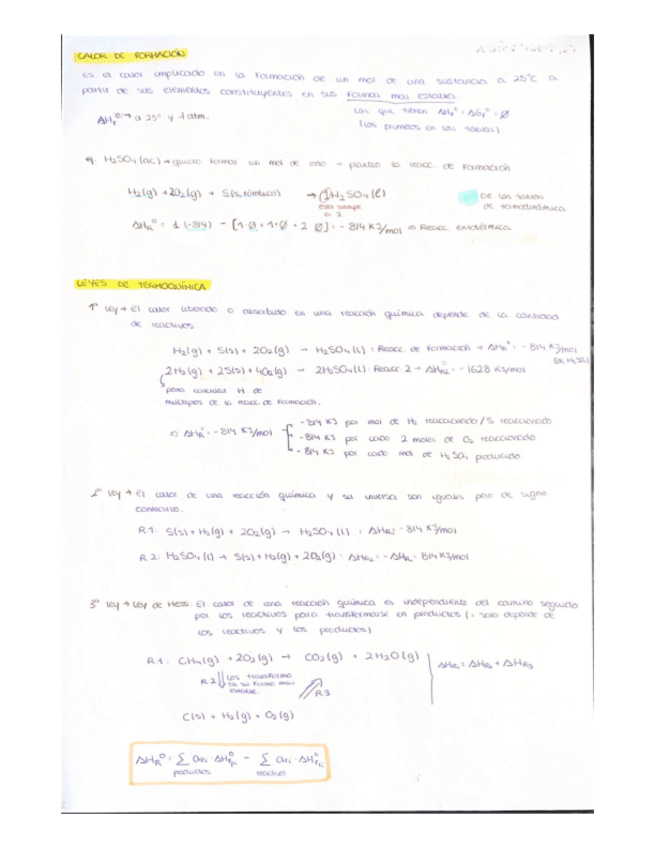 CALOR DE FORMACIÓN
Es el calor implicado en la formación de un mol de una sustancia a 25°C a
partir de sus elementos constituyentes en sus formas mas estables.
ΔHf° → a 25° y 1 atm.
Las que tienen ΔHf° = ΔGf° = Ø
(los primeros en las tablas)
ej. H2SO4(ac) → quiero formar un mol de eso → planteo la reacc. de formación
H2(g) + 2O2(g) + S(s, rómbico) → 1H2SO4(l)
eso siempre
es 1.
De las tablas
de termodinámica
ΔHR° = 1 (-814) - [1·Ø + 1·Ø + 2 Ø] = -814 KJ/mol ⇒ Reacc. exotérmica
LEYES DE TERMOQUÍMICA
1° Ley → El calor liberado o absorbido en una reacción química depende de la cantidad
de reactivos
H2(g) + S(s) + 2O2(g) → H2SO4(l) : Reacc. de formación → ΔHR° = -814 KJ/mol
(de H2SO4)
2H2(g) + 2S(s) + 4O2(g) → 2H2SO4(l) : Reacc. 2 → ΔHR2° = -1628 KJ/mol
para calcular H de
múltiplos de la reacc. de formación.
⇒ ΔHR° = -814 KJ/mol
-814 KJ por mol de H2 reaccionado / S reaccionado
-814 KJ por cada 2 moles de O2 reaccionado
-814 KJ por cada mol de H2SO4 producido
2° Ley → El calor de una reacción química y su inversa son iguales pero de signo
contrario.
R1: S(s) + H2(g) + 2O2(g) → H2SO4(l) : ΔHR1 = -814 KJ/mol
R2: H2SO4(l) → S(s) + H2(g) + 2O2(g) : ΔHR2 = -ΔHR1 = 814 KJ/mol
3° Ley → Ley de Hess: El calor de una reacción química es independiente del camino seguido
por los reactivos para transformarse en productos (: solo depende de
los reactivos y los productos)
R1: CH4(g) + 2O2(g) → CO2(g) + 2H2O(g)
ΔHR1 = ΔHR2 + ΔHR3
R2 los transformo
en su forma más
estable.
R3
C(s) + H2(g) + O2(g)
ΔHR° = Σ api · ΔHfpi° - Σ ari · ΔHfri°
productos reactivos